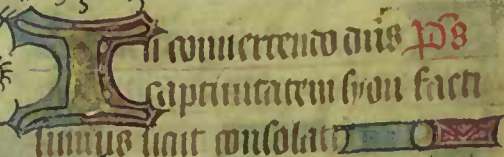 In conuertendo dn̄s p̄s
captiuitatem syon facti
sumus sicut consolati